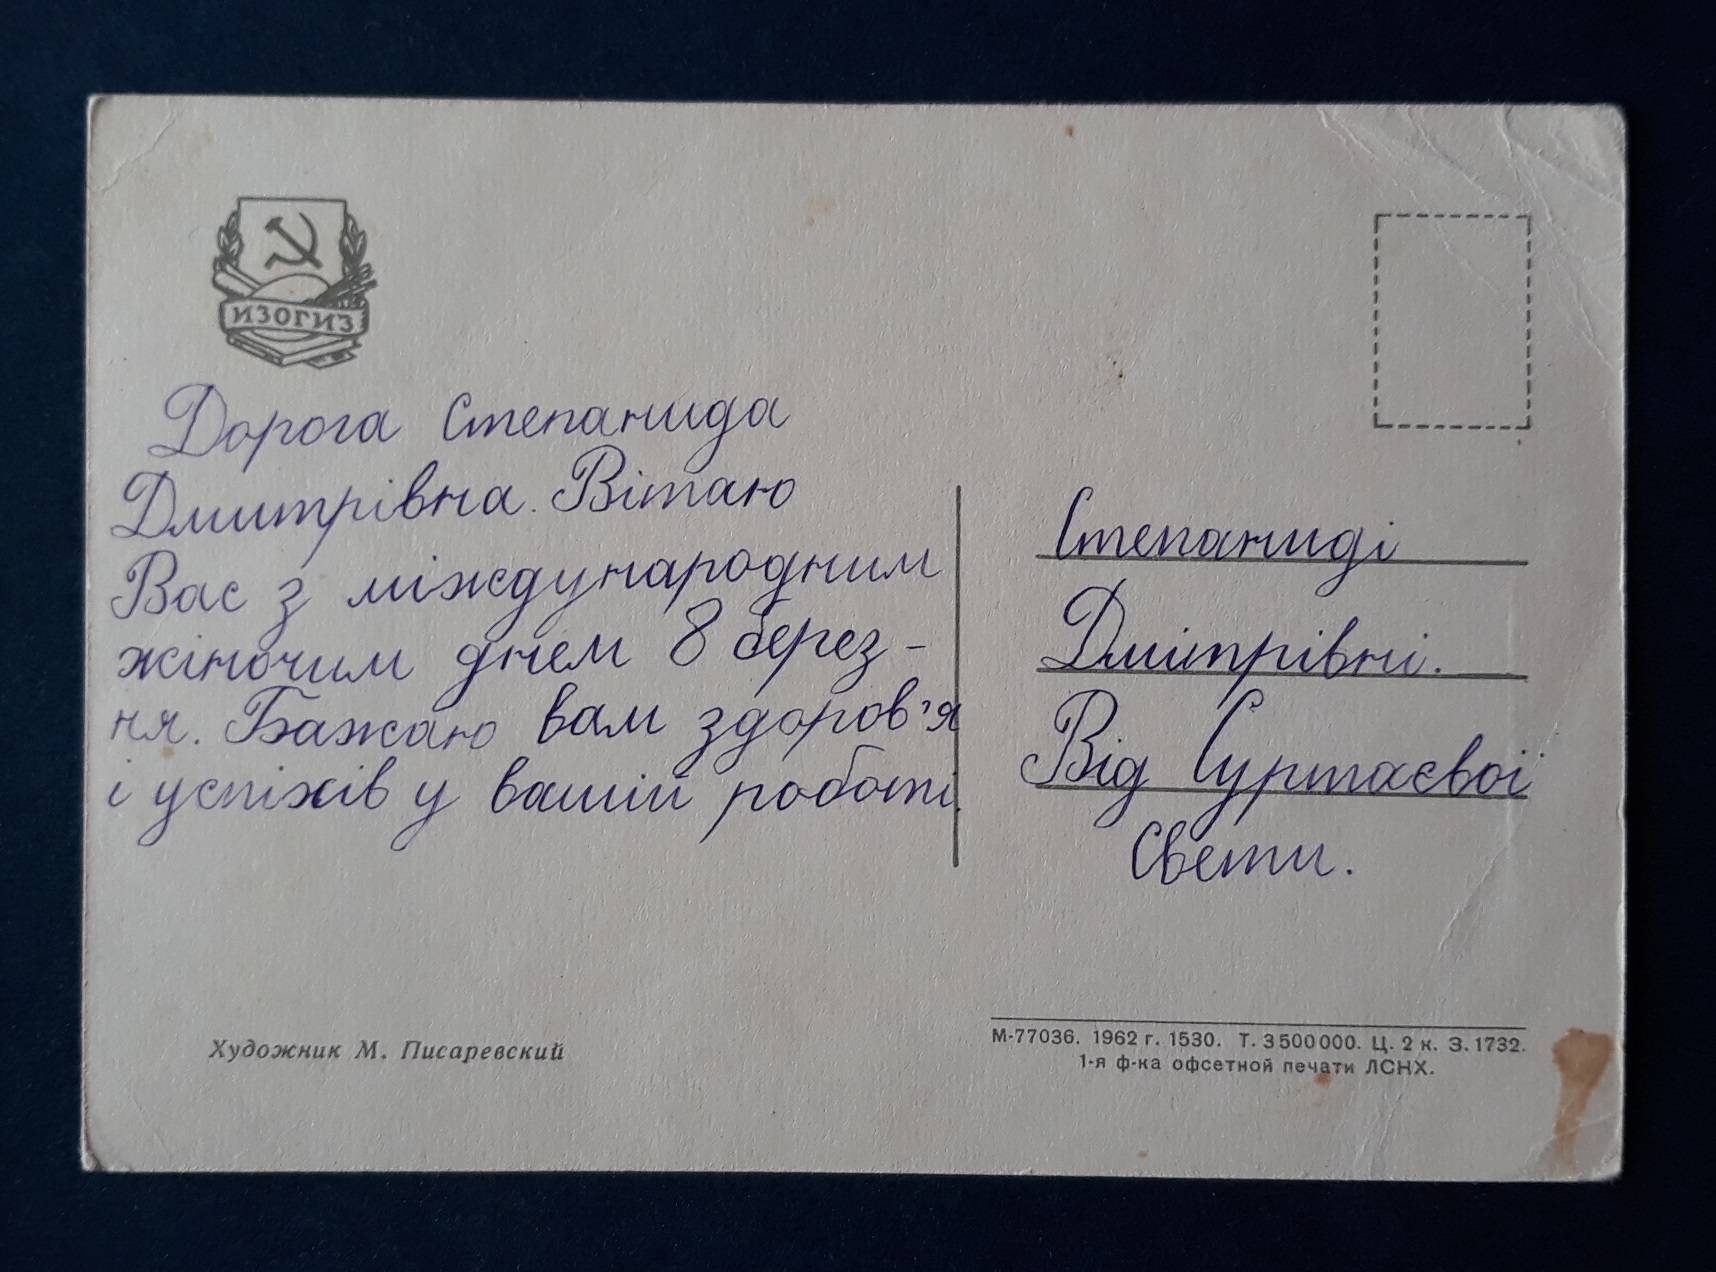 ИЗОГИЗ
Дорога Степанида
Дмитрівна. Вітаю
Вас з міждународним
жіночим днем 8 берез-
ня. Бажаю вам здоров'я
і успіхів у вашій роботі.
Степаниді
Дмітрівні.
Від Суртаєвої
Свети.
Художник М. Писаревский
М-77036. 1962 г. 1530. Т. 3500000. Ц. 2 к. З. 1732.
1-я ф-ка офсетной печати ЛСНХ.